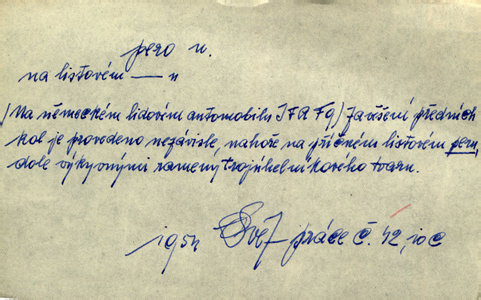 pero n.
na listovém — n
/Na německém lidovém automobilu IFA F9/ Zavěšení předních
kol je provedeno nezávisle, nahoře na příčném listovém peru,
dole výkyvnými rameny trojúhelníkového tvaru.
1954 Svět práce č. 42, 10 c